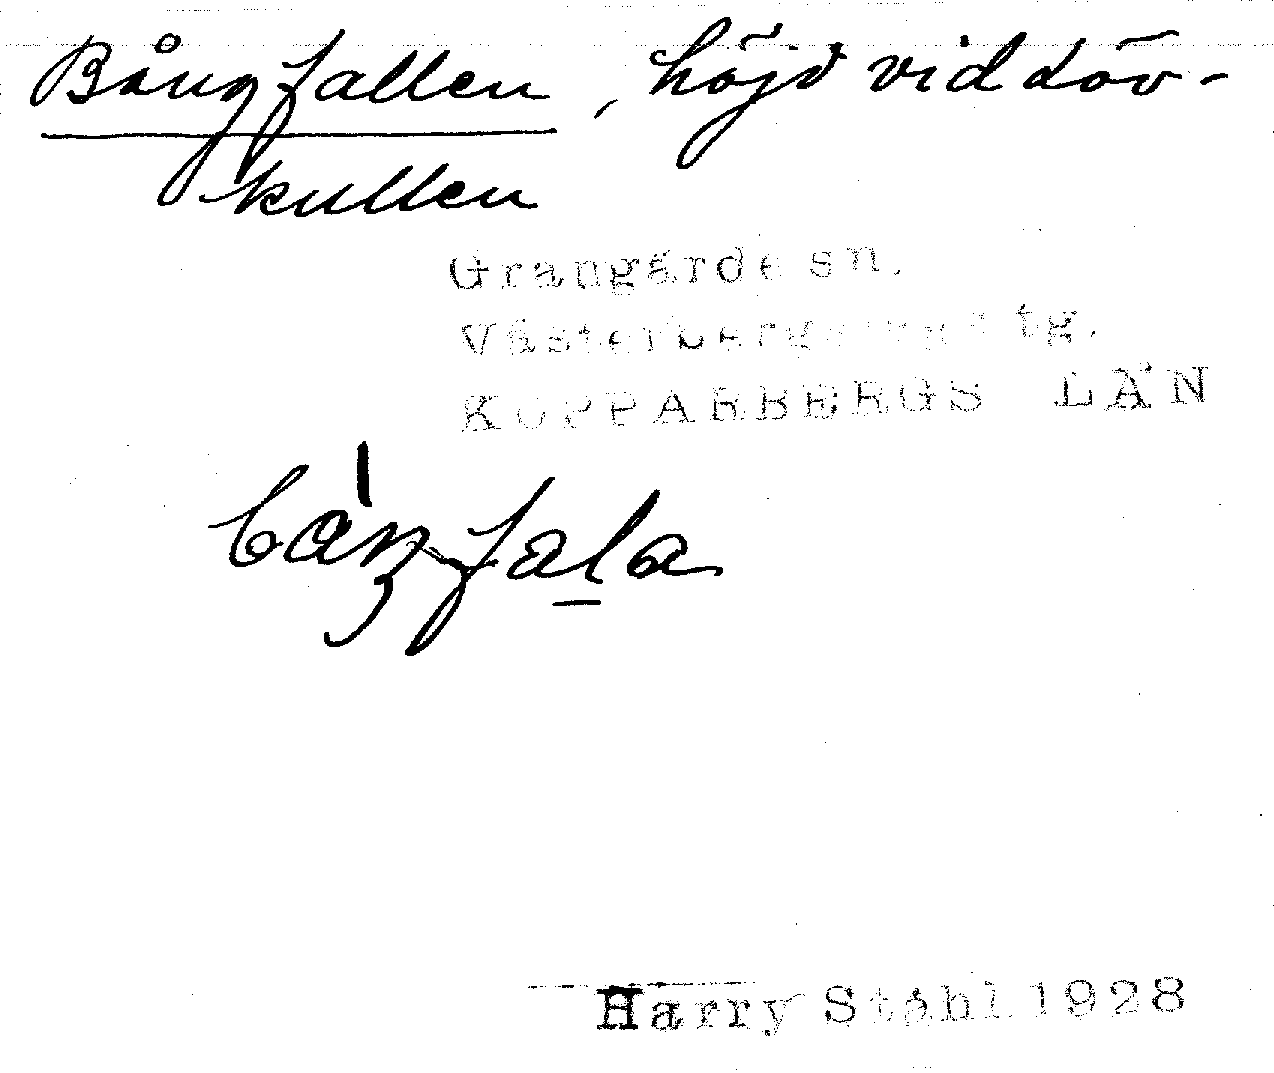 Bångfallen, höjd vid Löv-
kullen
Grangärde sn.
Västerbergslags tg.
KOPPARBERGS LÄN
Harry Ståhl 1928